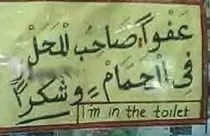 عفواً صاحبُ للْمَحَل
فِي الْحَمَّامْ وشكراً
I'm in the toilet